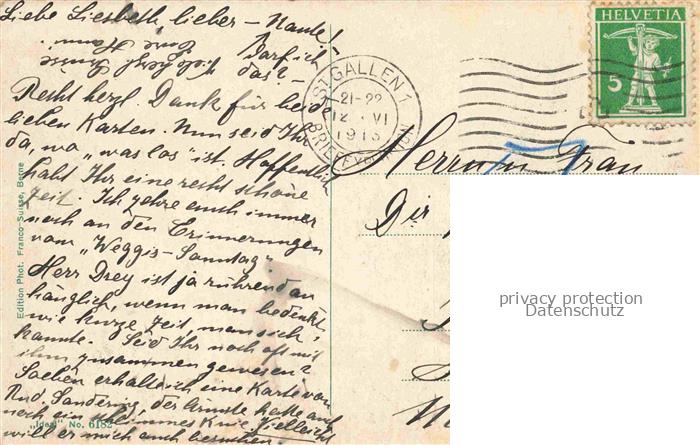 Liebe Liesbeth, lieber – Nante!
Darf ich
das? –
Recht herzl. Dank für beide
lieben Karten. Nun seid Ihr
da, wo „was los" ist. Hoffentlich
habt Ihr eine recht schöne
Zeit. Ich zehre auch immer
noch an den Erinnerungen
vom „Weggis-Sonntag".
Herr Drey ist ja rührend an
hänglich, wenn man bedenkt
wie kurze Zeit, man sich
kannte. Seid Ihr noch oft mit
ihm zusammen gewesen?
Soeben erhalte ich eine Karte von
Rud. Sandering, der Ärmste hatte auch
noch ein schlimmes Knie. Vielleicht
will er mich auch besuchen.
herzlichst Grüsse
Eure
Edition Phot. Franco-Suisse, Berne
„Ideal" No. 6182
ST. GALLEN 1
21-22
12 VI
1913
BRIEF
HELVETIA
5
Herrn u. Frau
Dir
privacy protection
Datenschutz